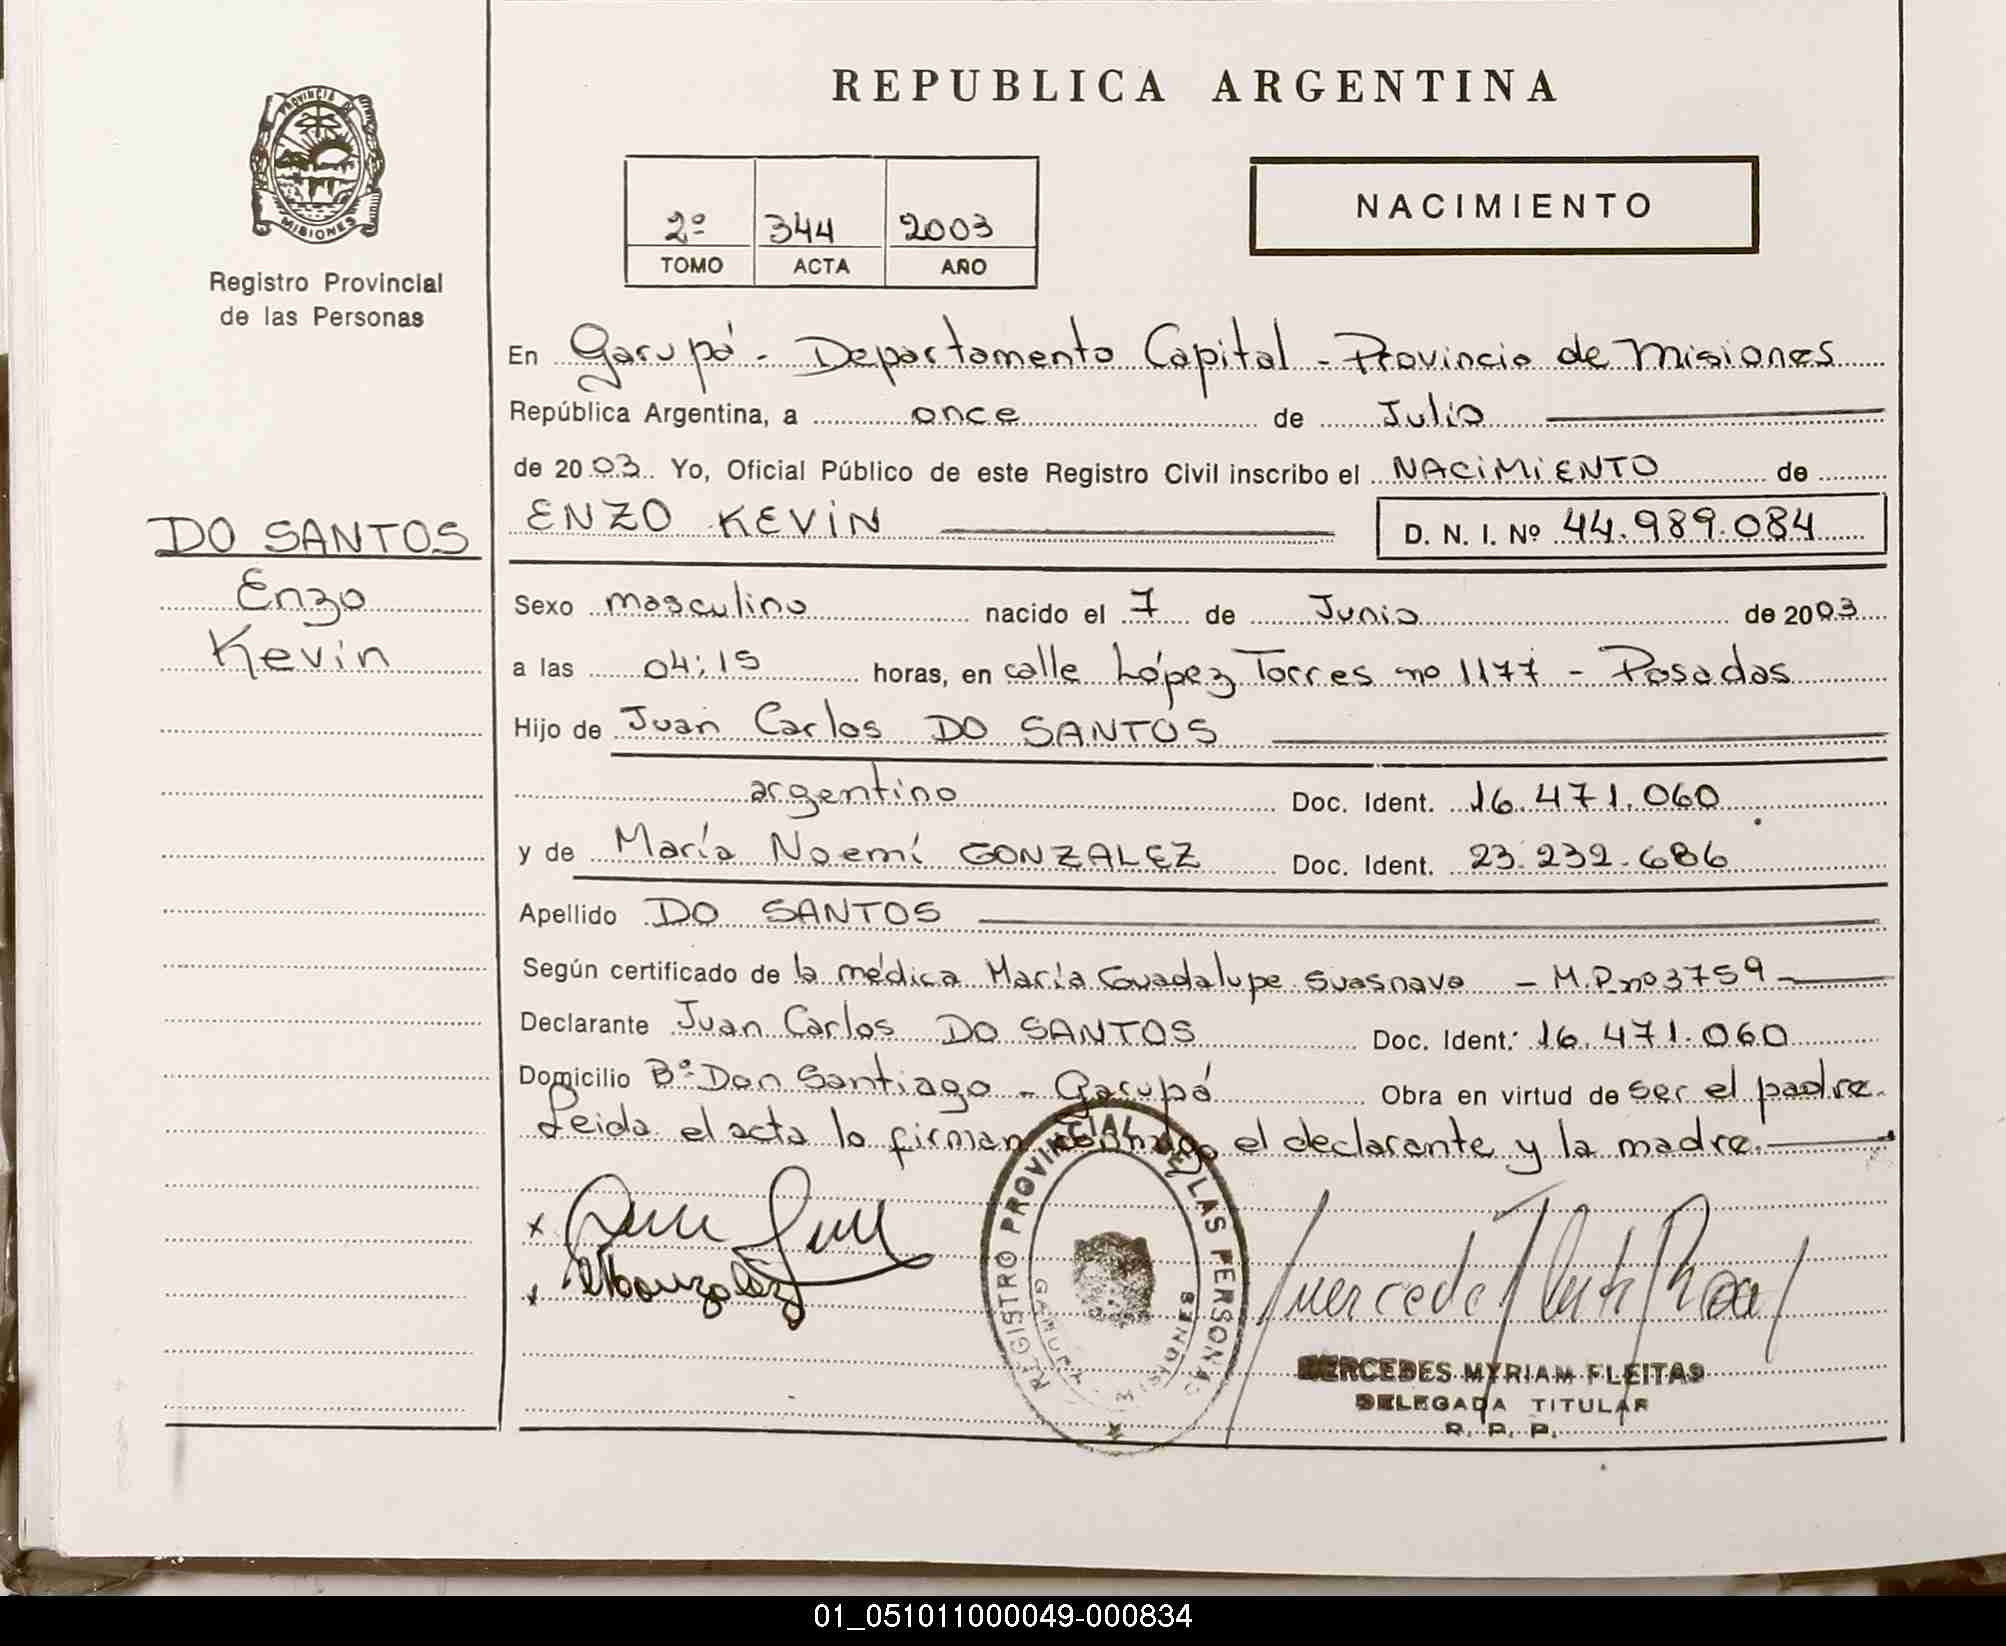 REPUBLICA ARGENTINA
PROVINCIA DE
MISIONES
Registro Provincial
de las Personas
2º 344 2003
TOMO ACTA AÑO
NACIMIENTO
En Garupá - Departamento Capital - Provincia de Misiones
República Argentina, a once de Julio
de 2003. Yo, Oficial Público de este Registro Civil inscribo el NACIMIENTO de
ENZO KEVIN D. N. I. Nº 44.989.084
DO SANTOS
Enzo
Kevin
Sexo masculino nacido el 7 de Junio de 2003
a las 04:15 horas, en calle López Torres nº 1177 - Posadas
Hijo de Juan Carlos DO SANTOS
argentino Doc. Ident. 16.471.060
y de María Noemí GONZALEZ Doc. Ident. 23.232.686
Apellido DO SANTOS
Según certificado de la médica María Guadalupe Suasnava - M.P. nº 3759
Declarante Juan Carlos DO SANTOS Doc. Ident. 16.471.060
Domicilio Bº Don Santiago - Garupá Obra en virtud de ser el padre.
Leida el acta la firman conmigo el declarante y la madre.
REGISTRO PROVINCIAL DE LAS PERSONAS
GARUPA
MISIONES
MERCEDES MYRIAM FLEITAS
DELEGADA TITULAR
R. P. P.
01_051011000049-000834